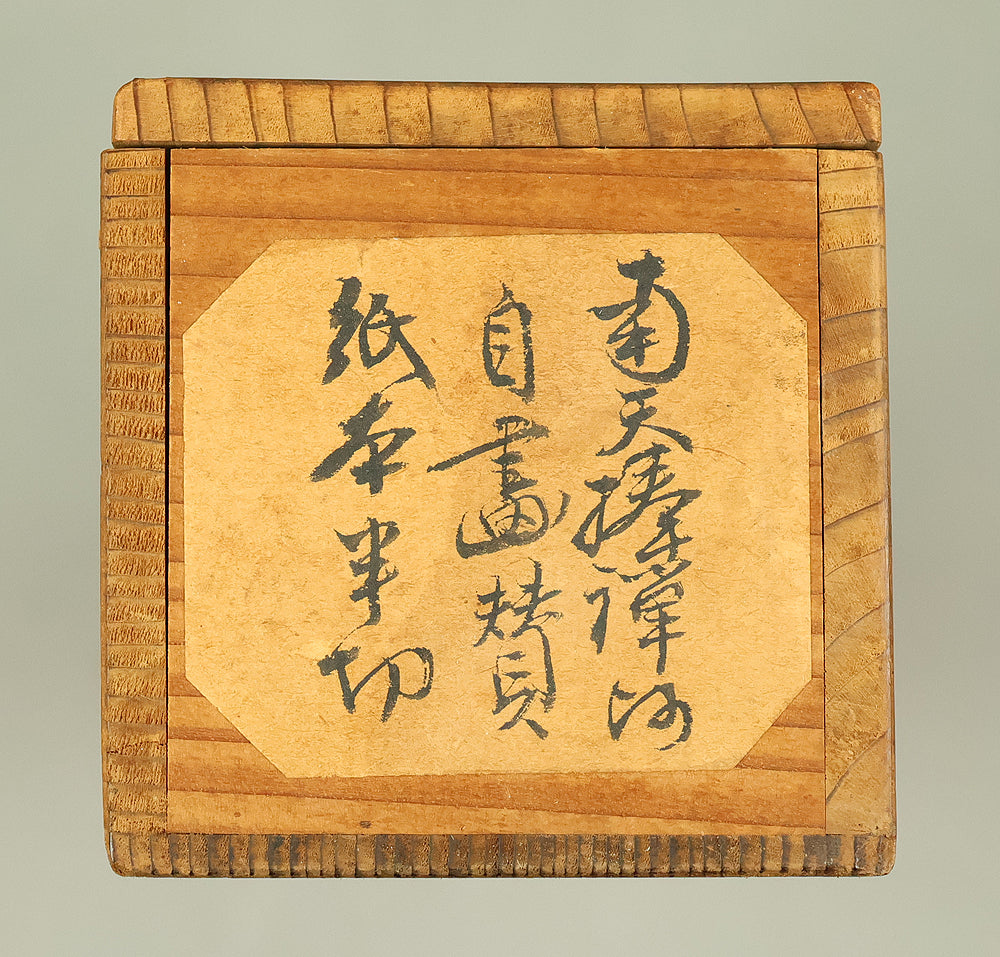 南天棒禅師
自畫賛
紙本半切